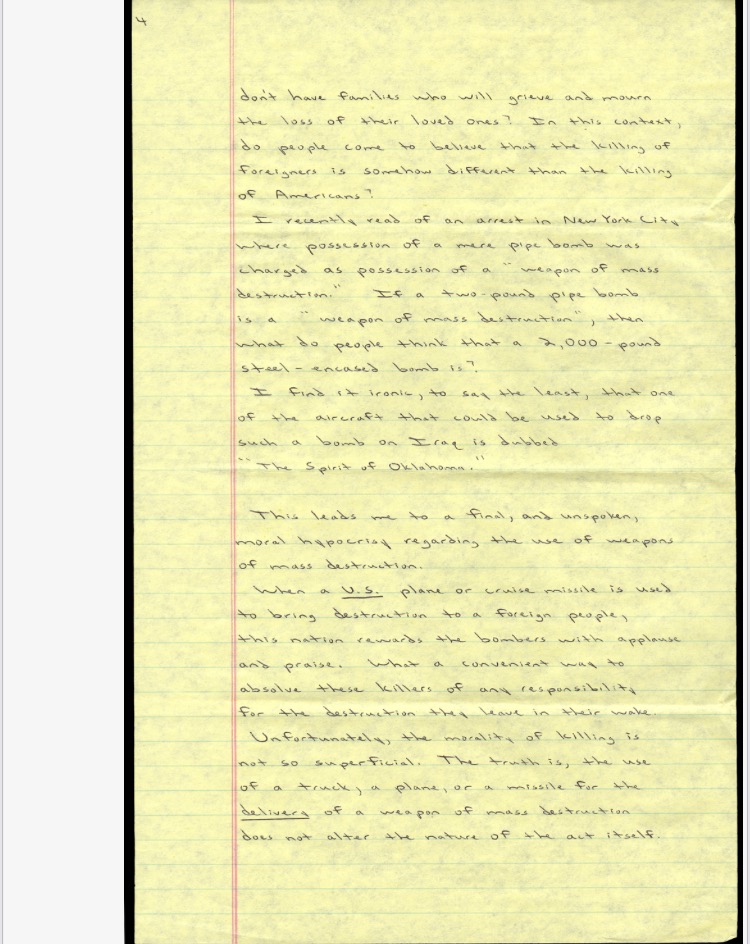 4
don't have families who will grieve and mourn
the loss of their loved ones? In this context,
do people come to believe that the killing of
foreigners is somehow different than the killing
of Americans?
I recently read of an arrest in New York City
where possession of a mere pipe bomb was
charged as possession of a "weapon of mass
destruction." If a two-pound pipe bomb
is a "weapon of mass destruction", then
what do people think that a 2,000-pound
steel-encased bomb is?
I find it ironic, to say the least, that one
of the aircraft that could be used to drop
such a bomb on Iraq is dubbed
"The Spirit of Oklahoma."
This leads me to a final, and unspoken,
moral hypocrisy regarding the use of weapons
of mass destruction.
When a U.S. plane or cruise missile is used
to bring destruction to a foreign people,
this nation rewards the bombers with applause
and praise. What a convenient way to
absolve these killers of any responsibility
for the destruction they leave in their wake.
Unfortunately, the morality of killing is
not so superficial. The truth is, the use
of a truck, a plane, or a missile for the
delivery of a weapon of mass destruction
does not alter the nature of the act itself.